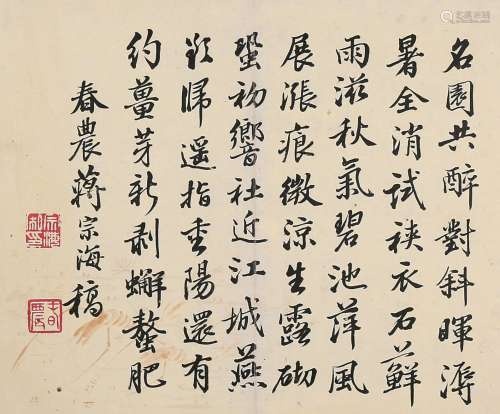 名園共醉對斜暉溽
暑全消試裌衣石蘚
雨滋秋氣碧池萍風
展漲痕微涼生露砌
蛩初響社近江城燕
欲歸遥指重陽還有
約薑芽新剝蠏螯肥
春農蔣宗海稿